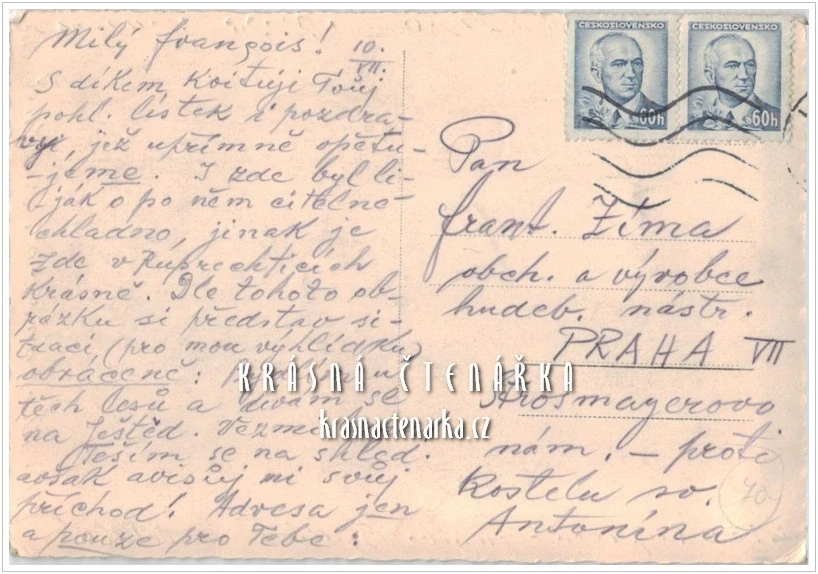 Milý François! 10.
VII.
S díkem kvituji Tvůj
pohl. lístek i pozdra-
vy, jež upřímně opětu-
jeme. I zde byl li-
ják a po něm citelně
chladno, jinak je
zde v Ruprechticích
krásně. Dle tohoto ob-
rázku si představ si-
tuaci (pro mou vyhlídku
obráceně:
těch lesů a dívám se
na Ještěd.
Těším se na shled.
avšak avisuj mi svůj
příchod! Adresa jen
a pouze pro Tebe:
ČESKOSLOVENSKO
60h
ČESKOSLOVENSKO
60h
Pan
Frant. Zíma
obch. a výrobce
hudeb. nástr.
PRAHA VII
Strosmayerovo
nám. – proti
Kostelu sv.
Antonína
70-
KRÁSNÁ ČTENÁŘKA
krasnactenarka.cz